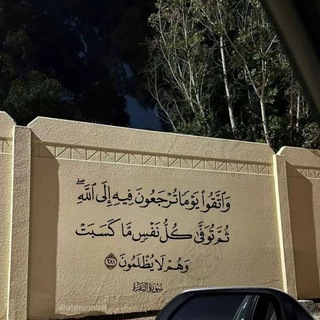 وَٱتَّقُوا۟ يَوْمًا تُرْجَعُونَ فِيهِ إِلَى ٱللَّهِ ۖ
ثُمَّ تُوَفَّىٰ كُلُّ نَفْسٍ مَّا كَسَبَتْ
وَهُمْ لَا يُظْلَمُونَ ۝٢٨١
سُورَةُ البَقَرَة